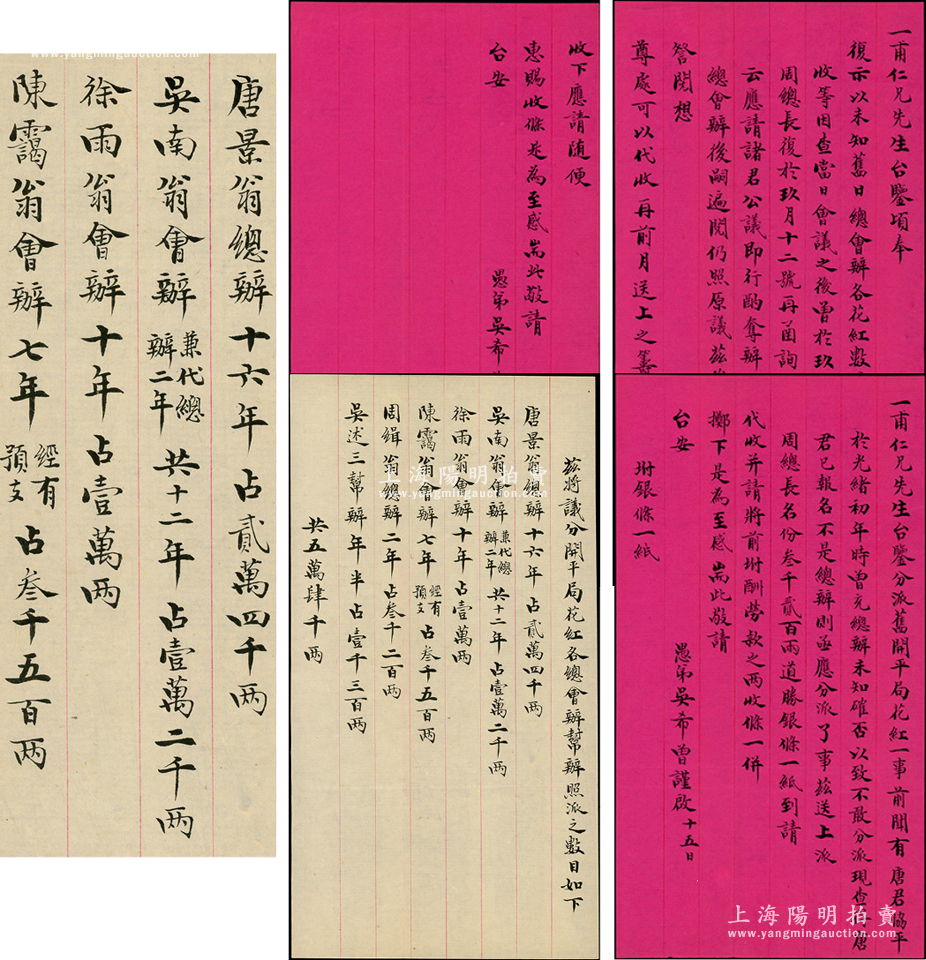 一甫仁兄先生台鑒頃奉
復示以未知舊日總會辦各花紅數
收等因查當日會議之後曾於玖
周總長復於玖月十二號再函詢
云應請諸君公議即行酌奪辦
總會辦後嗣遍閱仍照原議茲
詧閱想
尊處可以代收再前月送上之籌
收下應請隨便
惠賜收條是為至感耑此敬請
台安
愚弟吳希
一甫仁兄先生台鑒分派舊開平局花紅一事前聞有唐君協平
於光緒初年時曾充總辦未知確否以致不敢分派現查唐
君已報名不是總辦則亟應分派了事茲送上派
周總長名份叁千貳百兩道勝銀條一紙到請
代收并請將前坿酬勞款之兩收條一併
擲下是為至感耑此敬請
台安
愚弟吳希曾謹啟十五日
坿銀條一紙
茲將議分開平局花紅各總會辦幫辦照派之數目如下
唐景翁總辦十六年占貳萬四千两
吳南翁會辦兼代總辦二年共十二年占壹萬二千两
徐雨翁會辦十年占壹萬两
陳靄翁會辦七年經有預支占叁千五百两
周緝翁總辦二年占叁千二百两
吳述三幫辦年半占壹千三百两
共五萬肆千两
唐景翁總辦十六年占貳萬四千两
吳南翁會辦兼代總辦二年共十二年占壹萬二千两
徐雨翁會辦十年占壹萬两
陳靄翁會辦七年經有預支占叁千五百两
上海陽明拍賣
www.yangmingauction.com
上海陽明拍賣
www.yangmingauction.com
www.yangmingauction.com